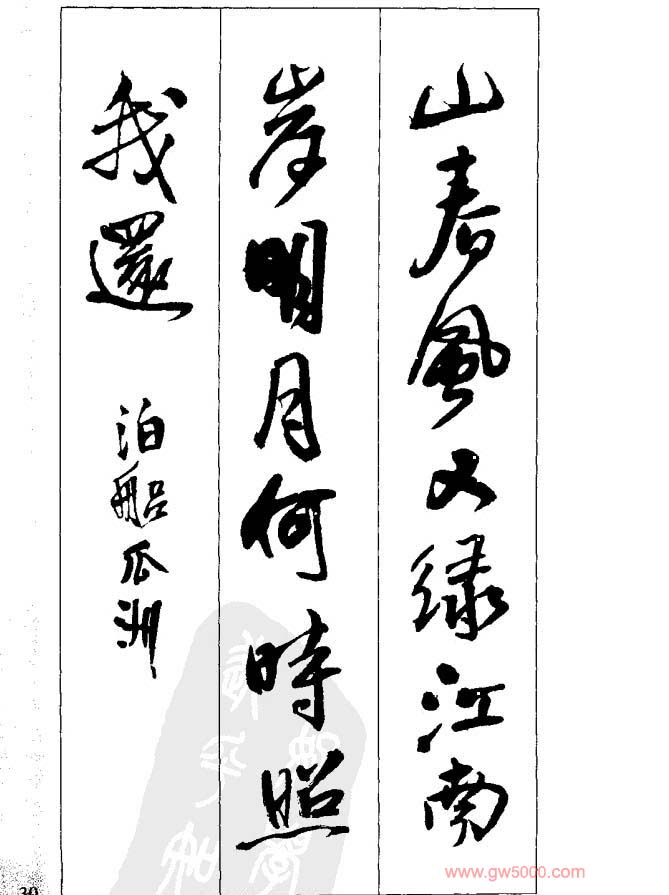 山春風又绿江南
岸明月何時照
我還
泊船瓜洲
www.gw5000.com
30